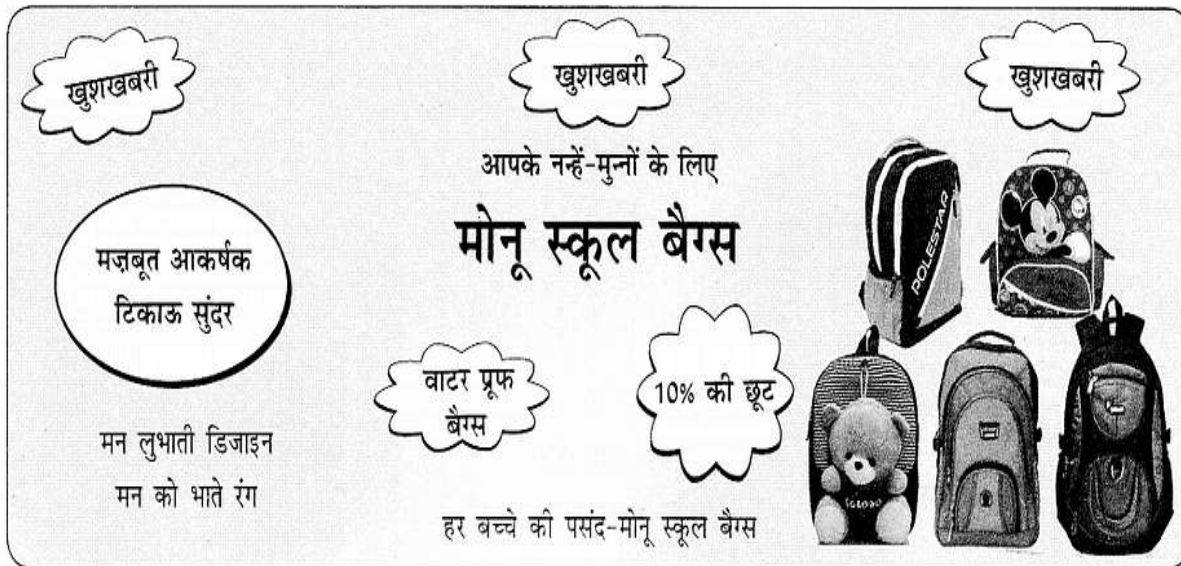 खुशखबरी
खुशखबरी
खुशखबरी
आपके नन्हें-मुन्नों के लिए
मोनू स्कूल बैग्स
मज़बूत आकर्षक
टिकाऊ सुंदर
वाटर प्रूफ
बैग्स
10% की छूट
मन लुभाती डिजाइन
मन को भाते रंग
हर बच्चे की पसंद-मोनू स्कूल बैग्स
POLESTAR